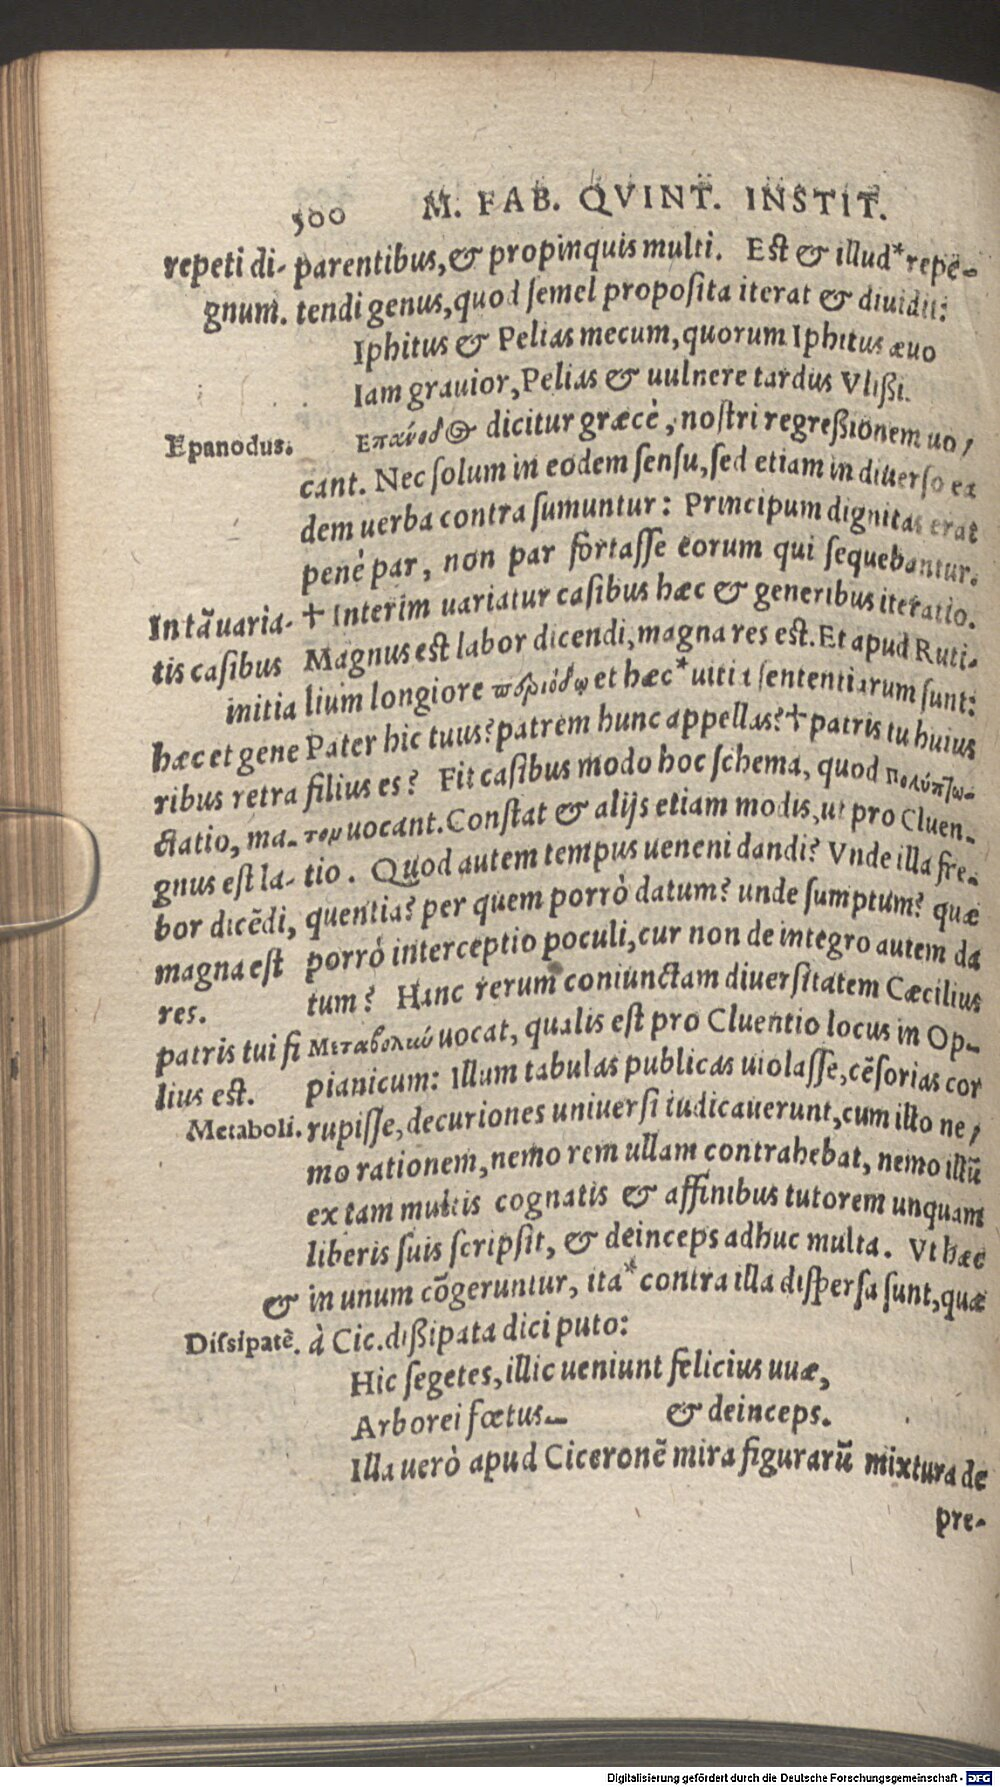 500 M. FAB. QVINT. INSTIT.
parentibus, & propinquis multi. Est & illud* repē-
tendi genus, quod semel proposita iterat & diuidit:
Iphitus & Pelias mecum, quorum Iphitus æuo
Iam grauior, Pelias & uulnere tardus Vlißi.
Επάνοδος dicitur græcè, nostri regreßionem uo/
cant. Nec solum in eodem sensu, sed etiam in diuerso ea
dem uerba contra sumuntur: Principum dignitas erat
penè par, non par fortasse eorum qui sequebantur.
† Interim uariatur casibus hæc & generibus iteratio.
Magnus est labor dicendi, magna res est. Et apud Ruti-
lium longiore περιόδῳ et hæc* uitia sententiarum sunt:
Pater hic tuus? patrem hunc appellas? † patris tu huius
filius es? Fit casibus modo hoc schema, quod Πολύπτω-
τον uocant. Constat & alijs etiam modis, ut pro Cluen-
tio. Quod autem tempus ueneni dandi? Vnde illa fre-
quentia? per quem porrò datum? unde sumptum? quæ
porrò interceptio poculi, cur non de integro autem da
tum? Hanc rerum coniunctam diuersitatem Cæcilius
Μεταβολὴν uocat, qualis est pro Cluentio locus in Op-
pianicum: Illum tabulas publicas uiolasse, cēsorias cor
rupisse, decuriones uniuersi iudicauerunt, cum illo ne/
mo rationem, nemo rem ullam contrahebat, nemo illū
ex tam multis cognatis & affinibus tutorem unquam
liberis suis scripsit, & deinceps adhuc multa. Vt hæc
in unum cōgeruntur, ita* contra illa dispersa sunt, quæ
à Cic. dißipata dici puto:
Hic segetes, illic ueniunt felicius uuæ,
Arborei fœtus— & deinceps.
Illa uerò apud Ciceronē mira figurarū mixtura de
pre-
repeti di-
gnum.
Epanodus.
In tā uaria-
tis casibus
initia
hæc et gene
ribus retra
ctatio, ma-
gnus est la-
bor dicēdi,
magna est
res.
patris tui fi
lius est.
Metaboli.
&
Dissipatē.
Digitalisierung gefördert durch die Deutsche Forschungsgemeinschaft - DFG